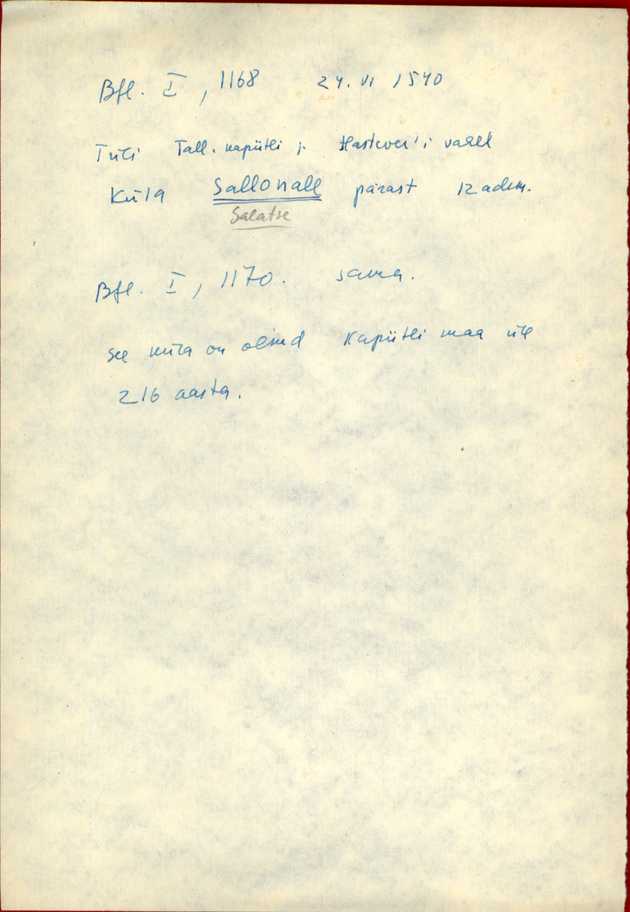 Bfl. I, 1168 24. VI 1540
Tüli Tall. kapiitli j. Hastwer'i vahel
Küla Sallonall pärast 12 adm.
Salatse
Bfl. I, 1170. sama.
See küla on olnud kapiitli maa üle
216 aasta.